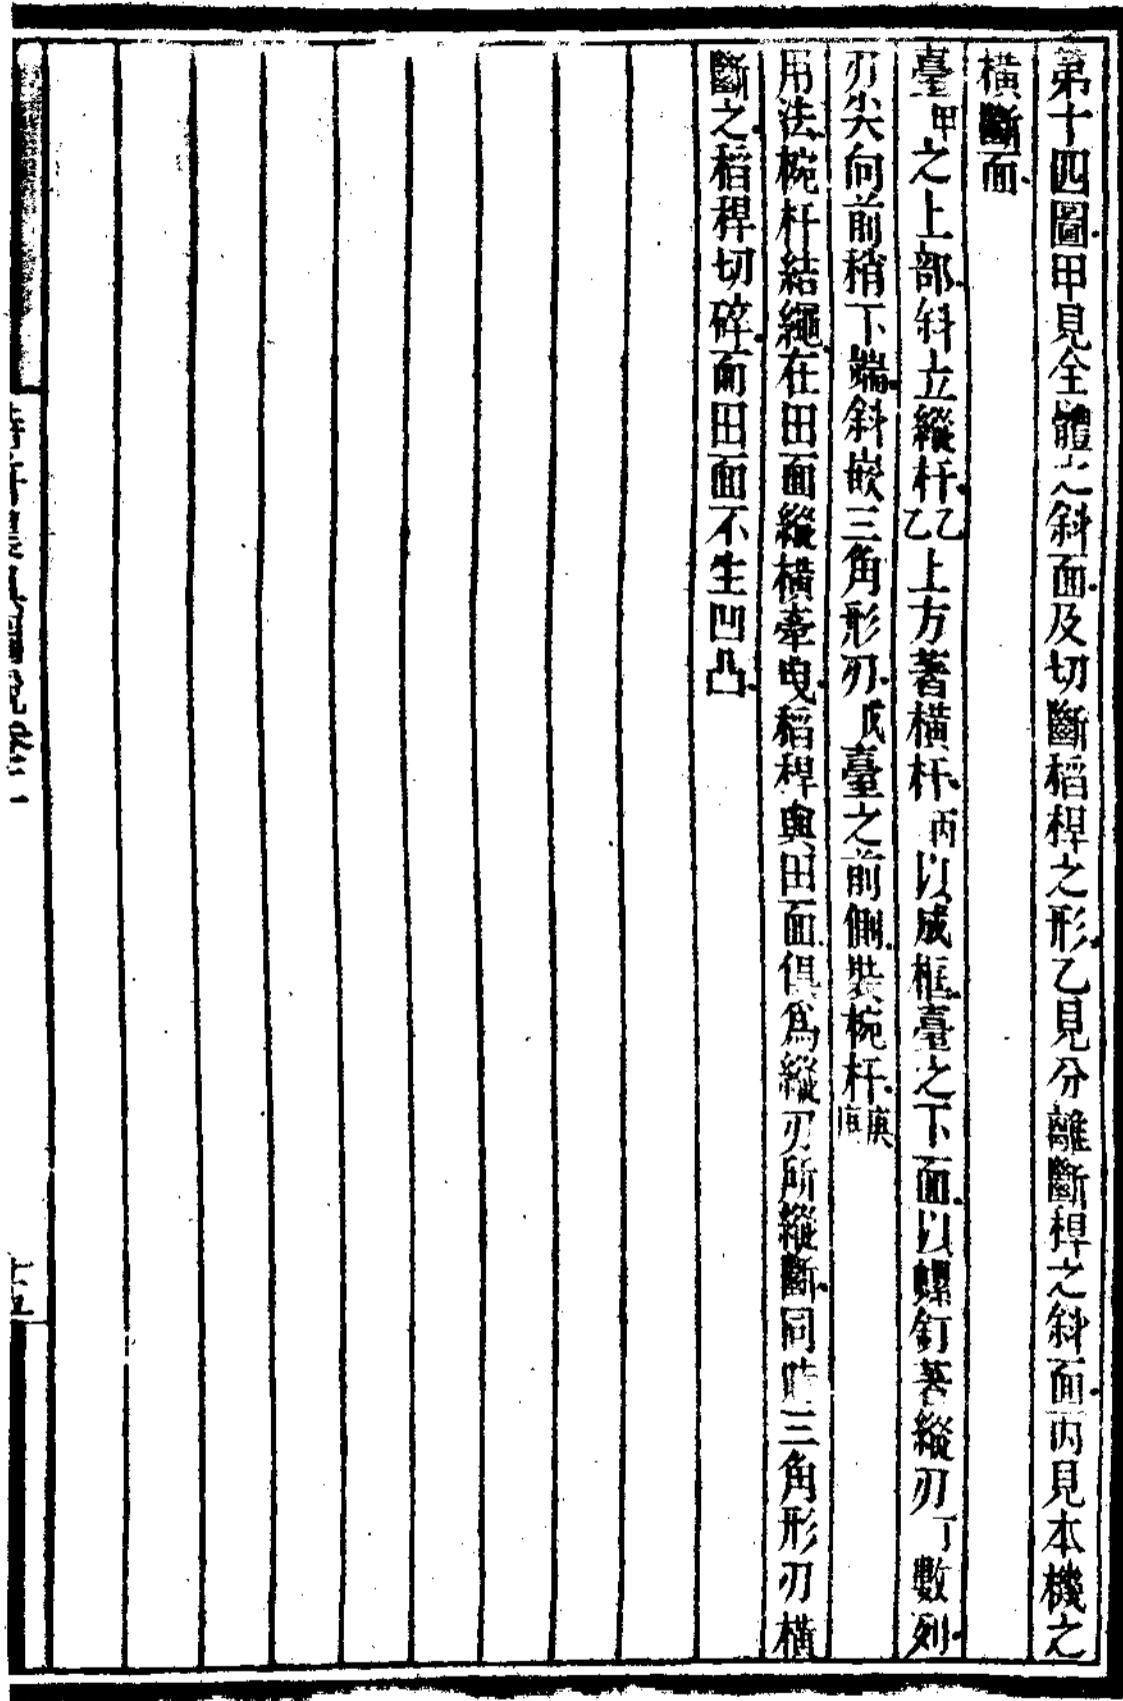 第十四圖甲見全體之斜面及切斷稻稈之形乙見分離斷稈之斜面丙見本機之
橫斷面
臺甲之上部斜立縱杆乙乙上方著橫杆丙以成框臺之下面以螺釘著縱刃丁數列
刃尖向前稍下端斜嵌三角形刃戊臺之前側裝椀杆庚庚
用法椀杆結繩在田面縱橫牽曳稻稈與田面俱爲縱刃所縱斷同時三角形刃橫
斷之稻稈切碎而田面不生凹凸
農具圖說卷一
十五